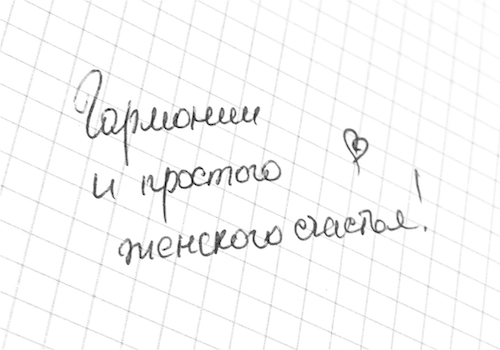 Гармонии
и простого
женского счастья!